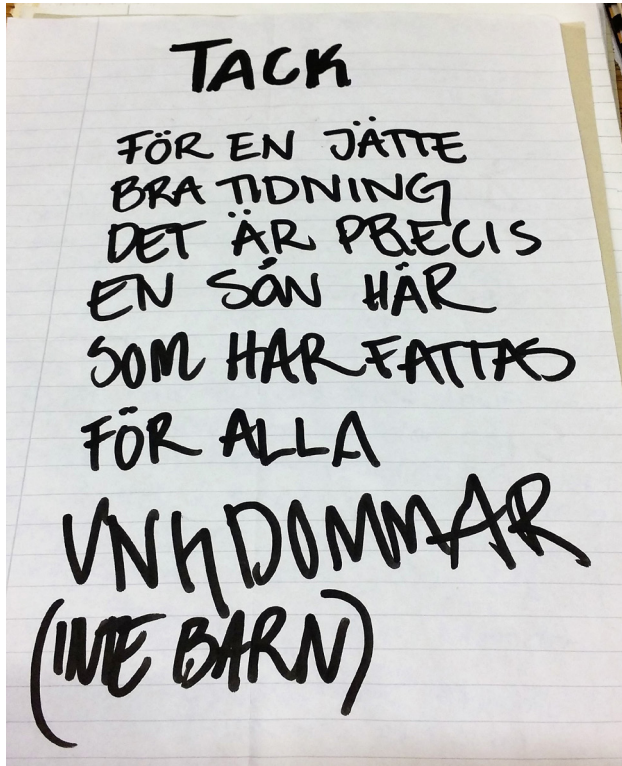 TACK
FÖR EN JÄTTE
BRA TIDNING
DET ÄR PRECIS
EN SÅN HÄR
SOM HAR FATTAS
FÖR ALLA
UNGDOMMAR
(INTE BARN)